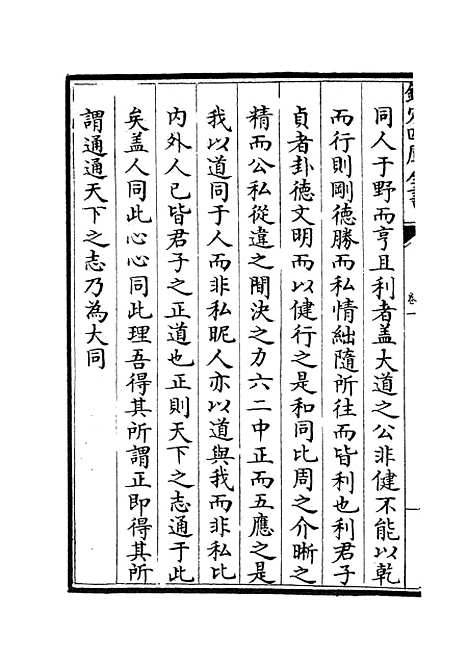 同人于野而亨且利者盖大道之公非健不能以乾
而行則剛德勝而私情絀隨所往而皆利也利君子
貞者卦德文明而以健行之是和同比周之介晣之
精而公私從違之閒決之力六二中正而五應之是
我以道同于人而非私昵人亦以道與我而非私比
内外人已皆君子之正道也正則天下之志通于此
矣盖人同此心心同此理吾得其所謂正即得其所
謂通通天下之志乃為大同